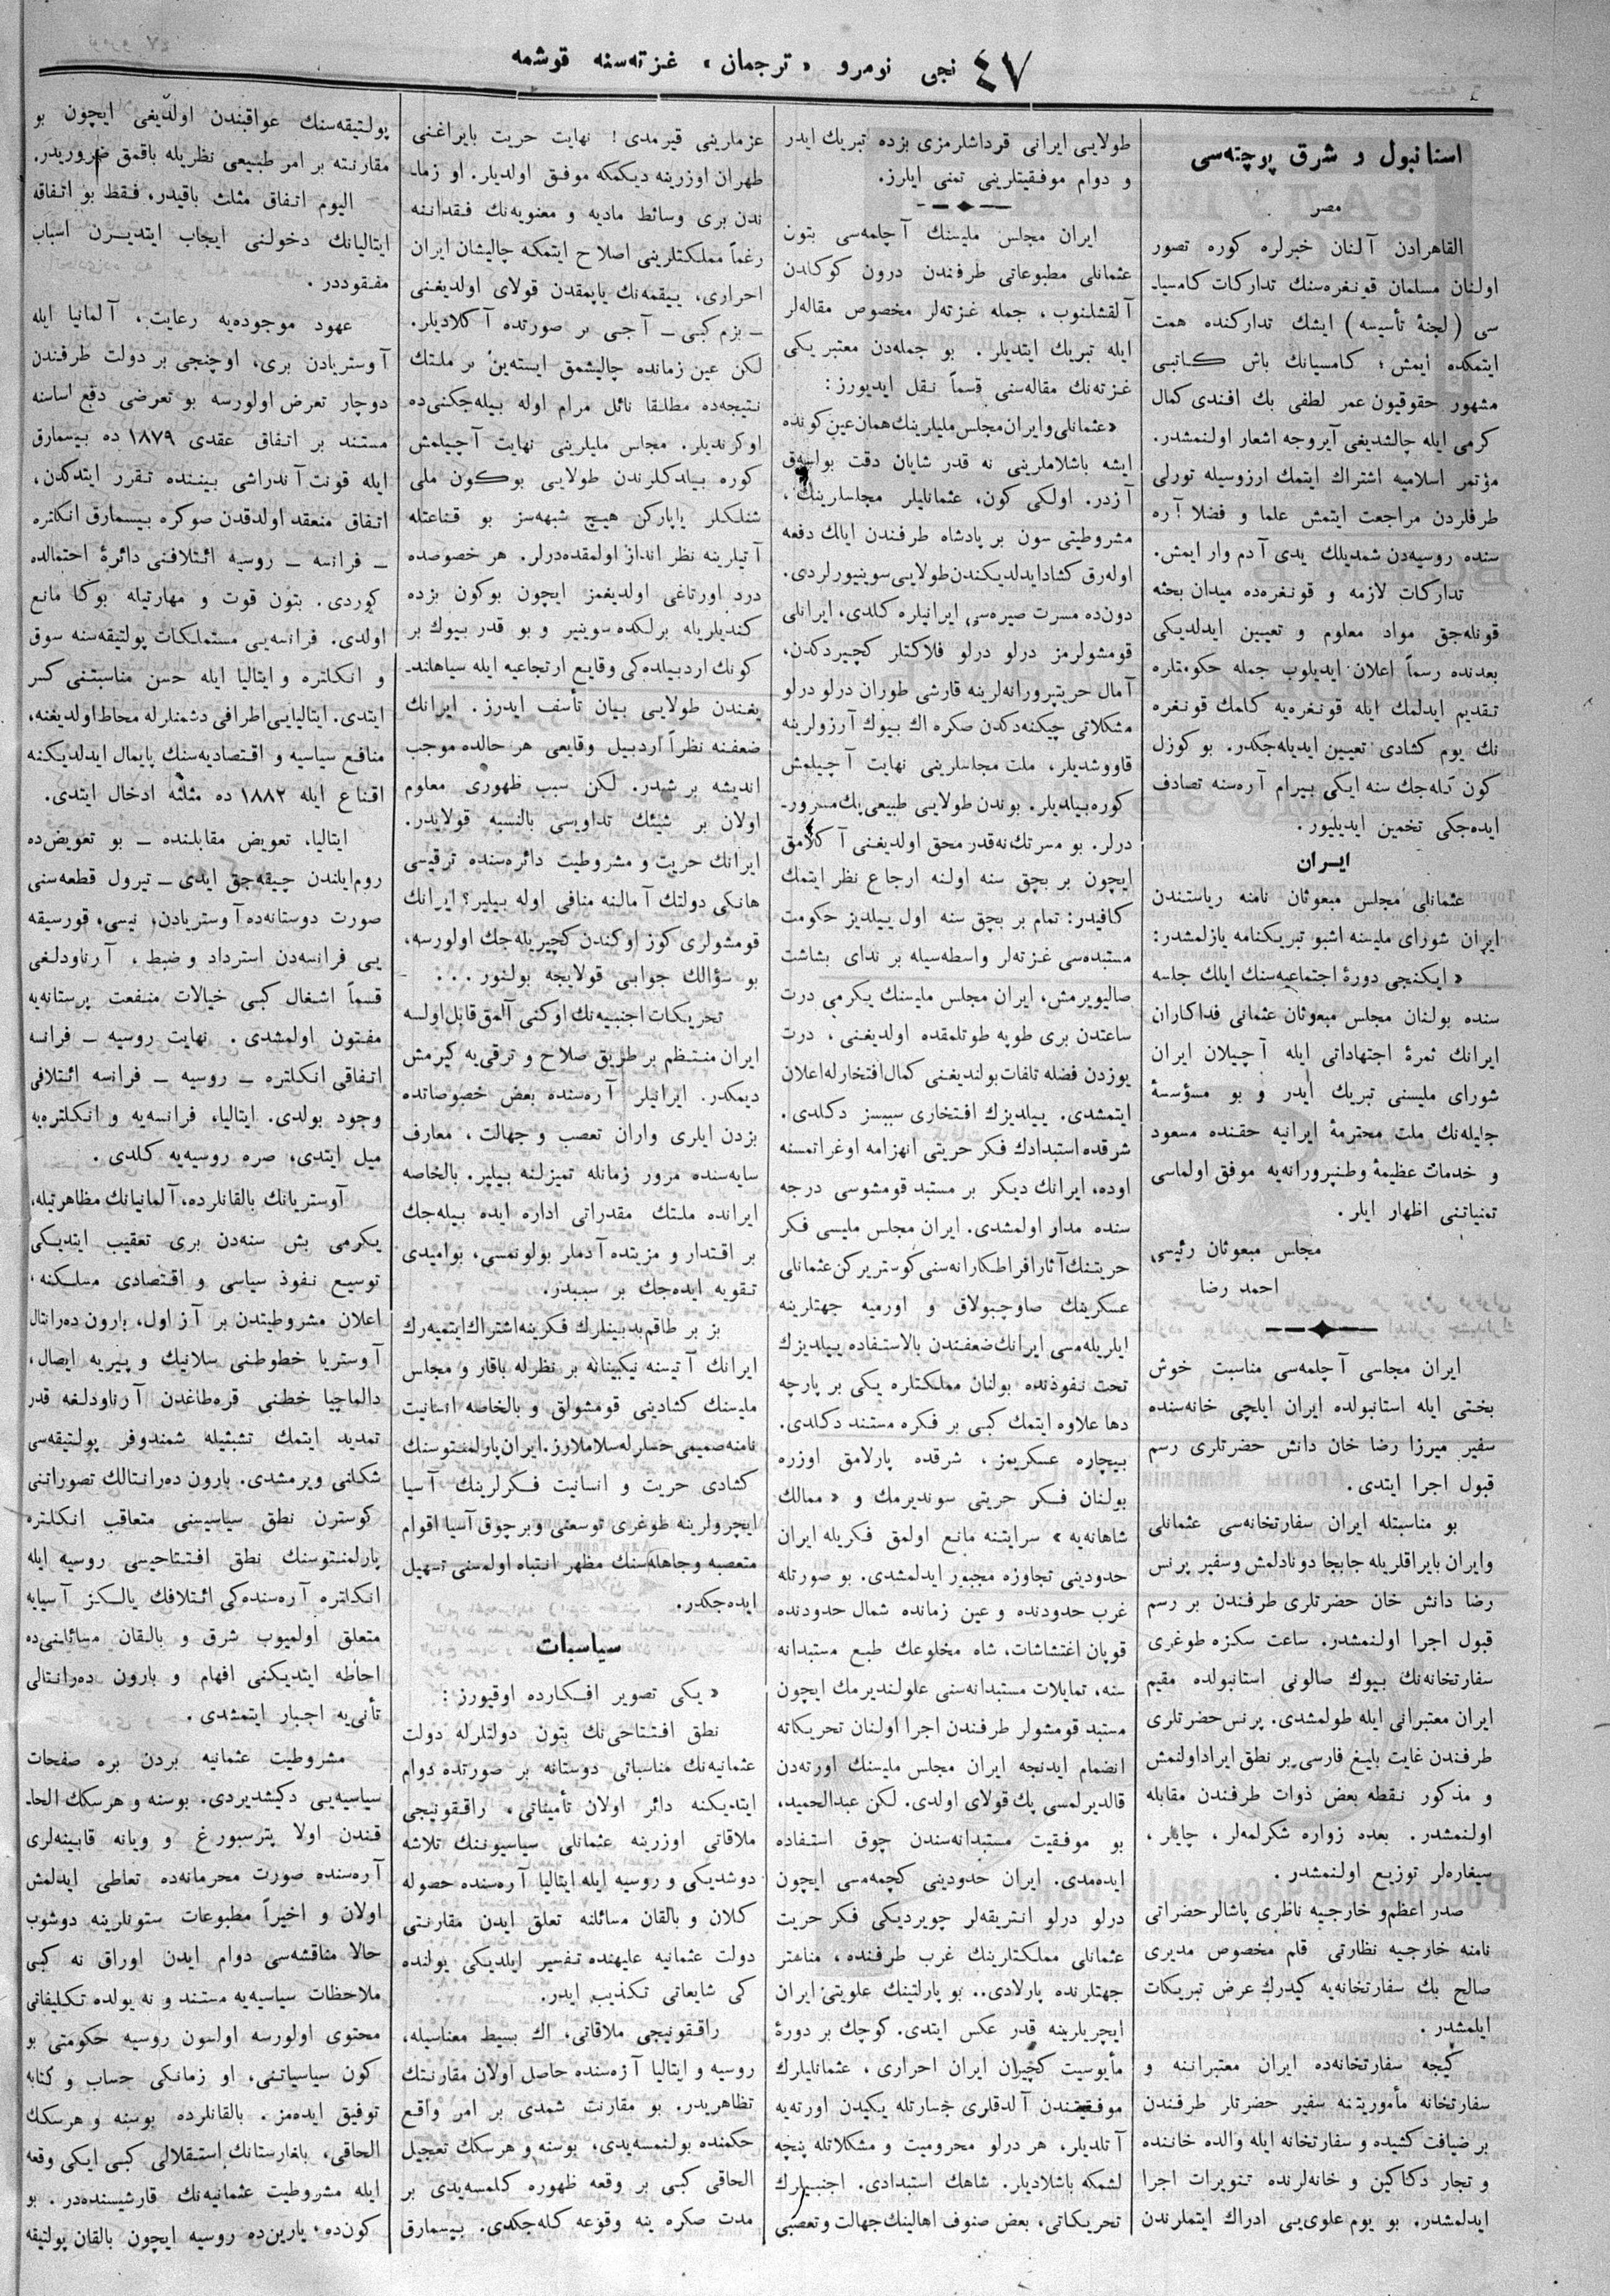 ٤٧ نجی نومرو «ترجمان» غزته‌سنه قوشمه
استانبول و شرق پوچته‌سی
مصر
القاهرادن آلنان خبرلره كوره تصور
اولنان مسلمان قونغره‌سنك تداركات كامسیا-
سی (لجنهٔ تأسیسه) ایشك تداركنده همت
ایتمكده ایمش؛ كامسیانك باش كاتبی
مشهور حقوقیون عمر لطفی بك افندی كمال
كرمی ایله چالشدیغی آیروجه اشعار اولنمشدر.
مؤتمر اسلامیه اشتراك ایتمك ارزوسیله تورلی
طرفلردن مراجعت ایتمش علما و فضلا آره
سنده روسیه‌دن شمدیلك یدی آدم وار ایمش.
تداركات لازمه و قونغره‌ده میدان بحثه
قونله‌جق مواد معلوم و تعیین ایدلدیكی
بعدنده رسماً اعلان ایدیلوب جمله حكومتلره
تقدیم ایدلمك ایله قونغره‌یه كلمك قونغره
نك یوم كشادی تعیین ایدیله‌جكدر. بو كوزل
كون كله‌جك سنه ایكی بیرام آره‌سنه تصادف
ایده‌جكی تخمین ایدیلیور.
ایران
عثمانلی مجلس مبعوثان نامنه ریاستندن
ایران شورای ملیسنه اشبو تبریكنامه یازلمشدر:
« ایكنجی دورهٔ اجتماعیه‌سنك ایلك جلسه
سنده بولنان مجلس مبعوثان عثمانی فداكاران
ایرانك ثمرهٔ اجتهاداتی ایله آچیلان ایران
شورای ملیسنی تبریك ایدر و بو مسؤسسهٔ
جلیله‌نك ملت محترمهٔ ایرانیه حقنده مسعود
و خدمات عظیمهٔ وطنپرورانه‌یه موفق اولماسی
تمنیاتنی اظهار ایلر.
مجلس مبعوثان رئیسی
احمد رضا
ایران مجلسی آچلمه‌سی مناسبت خوش
بختی ایله استانبولده ایران ایلچی خانه‌سنده
سفیر میرزا رضا خان دانش حضرتلری رسم
قبول اجرا ایتدی.
بو مناسبتله ایران سفارتخانه‌سی عثمانلی
وایران بایراقلریله جابجا دونادلمش وسفیر پرنس
رضا دانش خان حضرتلری طرفندن بر رسم
قبول اجرا اولنمشدر. ساعت سكزه طوغری
سفارتخانه‌نك بیوك صالونی استانبولده مقیم
ایران معتبرانی ایله طولمشدی. پرنس حضرتلری
طرفندن غایت بلیغ فارسی بر نطق ایراد اولنمش
و مذكور نقطه بعض ذوات طرفندن مقابله
اولنمشدر. بعده زواره شكرلمه‌لر، چایلر،
سیغاره‌لر توزیع اولنمشدر.
صدر اعظم و خارجیه ناظری پاشالر حضراتی
نامنه خارجیه نظارتی قلم مخصوص مدیری
صالح بك سفارتخانه‌یه كیدرك عرض تبریكات
ایلمشدر.
كیجه سفارتخانه‌ده ایران معتبراننه و
سفارتخانه مأموریتنه سفیر حضرتلر طرفندن
بر ضیافت كشیده و سفارتخانه ایله والده خاننده
و تجار دكاكین و خانه‌لرنده تنویرات اجرا
ایدلمشدر. بو یوم علوی‌یی ادراك ایتملرندن
طولایی ایرانی قرداشلرمزی بزده تبریك ایدر
و دوام موفقیتلرینی تمنی ایلرز.
ایران مجلس ملیسنك آچلمه‌سی بتون
عثمانلی مطبوعاتی طرفندن درون كوكلدن
آلقشلنوب، جمله غزته‌لر مخصوص مقاله‌لر
ایله تبریك ایتدیلر. بو جمله‌دن معتبر یكی
غزته‌نك مقاله‌سنی قسماً نقل ایدیورز:
«عثمانلی و ایران مجلس ملیلرینك همان عین كونده
ایشه باشلاملرینی نه قدر شایان دقت بولسه‌ق
آزدر. اولكی كون، عثمانلیلر مجلسلرینك،
مشروطیتی سون بر پادشاه طرفندن ایلك دفعه
اوله‌رق كشاد ایدلدیكندن طولایی سوینیورلردی.
دون‌ده مسرت صیره‌سی ایرانیلره كلدی، ایرانلی
قومشولرمز درلو درلو فلاكتلر كچیردكدن،
آمال حریتپرورانه‌لرینه قارشی طوران درلو درلو
مشكلاتی چیكنه‌دكدن صكره اك بیوك آرزولرینه
قاووشدیلر، ملت مجلسلرینی نهایت آچیلمش
كوره بیلدیلر. بوندن طولایی طبیعی پك مسرور-
درلر. بو مسرتك نه‌قدر محق اولدیغنی آكلامق
ایچون بر بچق سنه اولنه ارجاع نظر ایتمك
كافیدر: تمام بر بچق سنه اول ییلدیز حكومت
مستبده‌سی غزته‌لر واسطه‌سیله بر ندای بشاشت
صالیویرمش، ایران مجلس ملیسنك یكرمی درت
ساعتدن بری طوپه طوتلمقده اولدیغنی، درت
یوزدن فضله تلفات بولندیغنی كمال افتخارله اعلان
ایتمشدی. ییلدیزك افتخاری سببسز دكلدی.
شرقده استبدادك فكر حریتی انهزامه اوغراتمسنه
اوده، ایرانك دیكر بر مستبد قومشوسی درجه
سنده مدار اولمشدی. ایران مجلس ملیسی فكر
حریتنك آثار افراطكارانه‌سنی كوستریركن عثمانلی
عسكرینك صاوجبولاق و اورمیه جهتلرینه
ایلریله‌مسی ایرانك ضعفندن بالاستفاده ییلدیزك
تحت نفوذنده بولنان مملكتلره یكی بر پارچه
دها علاوه ایتمك كبی بر فكره مستند دكلدی.
بیچاره عسكریمز، شرقده پارلامق اوزره
بولنان فكر حریتی سوندیرمك و «ممالك
شاهانه‌یه» سرایتنه مانع اولمق فكریله ایران
حدودینی تجاوزه مجبور ایدلمشدی. بو صورتله
غرب حدودنده و عین زمانده شمال حدودنده
قوپان اغتشاشات، شاه مخلوعك طبع مستبدانه
سنه، تمایلات مستبدانه‌سنی علولندیرمك ایچون
مستبد قومشولر طرفندن اجرا اولنان تحریكاته
انضمام ایدنجه ایران مجلس ملیسنك اورته‌دن
قالدیرلمسی پك قولای اولدی. لكن عبدالحمید،
بو موفقیت مستبدانه‌سندن چوق استفاده
ایده‌مدی. ایران حدودینی كچمه‌مسی ایچون
درلو درلو انتریقه‌لر چویردیكی فكر حریت
عثمانلی مملكتلرینك غرب طرفنده، مناستر
جهتلرنده پارلادی.. بو پارلتینك علویتی ایران
ایچریلرینه قدر عكس ایتدی. كوچك بر دورهٔ
مأیوسیت كچیران ایران احراری، عثمانلیلرك
موفقیتندن آلدقلری جسارتله یكیدن اورته‌یه
آتلدیلر، هر درلو محرومیت و مشكلاتله پنچه
لشمكه باشلادیلر. شاهك استبدادی. اجنبیلرك
تحریكاتی، بعض صنوف اهالینك جهالت و تعصبی
عزملرینی قیرمدی! نهایت حریت بایراغنی
طهران اوزرینه دیكمكه موفق اولدیلر. او زما-
ندن بری وسائط مادیه و معنویه‌نك فقداننه
رغماً مملكتلرینی اصلاح ایتمكه چالیشان ایران
احراری، ییقمه‌نك یاپمقدن قولای اولدیغنی
– بزم كبی – آجی بر صورتده آكلادیلر.
لكن عین زمانده چالیشمق ایسته‌ین بر ملتك
نتیجه‌ده مطلقا نائل مرام اوله بیله‌جكنی‌ده
اوكرندیلر. مجلس ملیلرینی نهایت آچیلمش
كوره بیلدكلرندن طولایی بوكون ملی
شنلكلر یاپاركن هیچ شبهه‌سز بو قناعتله
آتیلرینه نظر انداز اولمقده‌درلر. هر خصوصده
درد اورتاغی اولدیغمز ایچون بوكون بزده
كندیلریله برلكده سوینیر و بو قدر بیوك بر
كونك اردبیلده‌كی وقایع ارتجاعیه ایله سیاهلند-
یغندن طولایی بیان تأسف ایدرز. ایرانك
ضعفنه نظراً اردبیل وقایعی هر حالده موجب
اندیشه بر شیدر. لكن سبب ظهوری معلوم
اولان بر شیئك تداویسی بالنسبه قولایدر.
ایرانك حریت و مشروطیت دائره‌سنده ترقیسی
هانكی دولتك آمالنه منافی اوله بیلیر؟ ایرانك
قومشولری كوز اوكندن كچیریله‌جك اولورسه،
بو سؤالك جوابی قولایجه بولنور...
تحریكات اجنبیه‌نك اوكنی آلمق قابل اولسه
ایران منتظم بر طریق صلاح و ترقی‌یه كیرمش
دیمكدر. ایرانیلر آره‌سنده بعض خصوصاتده
بزدن ایلری واران تعصب و جهالت، معارف
سایه‌سنده مرور زمانله تمیزلنه بیلیر. بالخاصه
ایرانده ملتك مقدراتی اداره ایده بیله‌جك
بر اقتدار و مزیتده آدملر بولونمسی، بوامیدی
تقویه ایده‌جك بر سببدر.
بز بر طاقم بدبینلرك فكرینه اشتراك ایتمیه‌رك
ایرانك آتیسنه نیكبینانه بر نظرله باقار و مجلس
ملیسنك كشادینی قومشولق و بالخاصه انسانیت
نامنه صمیمی حسلرله سلاملارز. ایران پارلمنتوسنك
كشادی حریت و انسانیت فكرلرینك آسیا
ایچرولرینه طوغری توسعنی و برچوق آسیا اقوام
متعصبه و جاهله‌سنك مظهر انتباه اولمسنی تسهیل
ایده‌جكدر.
سیاسیات
« یكی تصویر افكارده اوقیورز:
نطق افتتاحی‌نك بتون دولتلرله دولت
عثمانیه‌نك مناسباتی دوستانه بر صورتده دوام
ایتدیكنه دائر اولان تأمیناتی، راقونیجی
ملاقاتی اوزرینه عثمانلی سیاسیوننك تلاشه
دوشدیكی و روسیه ایله ایتالیا آره‌سنده حصوله
كلان و بالقان مسائلنه تعلق ایدن مقارنتی
دولت عثمانیه علیهنده تفسیر ایلدیكی یولنده
كی شایعاتی تكذیب ایدر.
راقونیچی ملاقاتی، اك بسیط معناسیله،
روسیه و ایتالیا آره‌سنده حاصل اولان مقارنتك
تظاهریدر. بو مقارنت شمدی بر امر واقع
حكمنده بولنمسه‌یدی، بوسنه و هرسك تعجیل
الحاقی كبی بر وقعه ظهوره كلمسه‌یدی بر
مدت صكره ینه وقوعه كله‌جكدی. بیسمارق
پولتیقه‌سنك عواقبندن اولدیغی ایچون بو
مقارنته بر امر طبیعی نظریله باقمق ضروریدر.
الیوم اتفاق مثلث باقیدر، فقط بو اتفاقه
ایتالیانك دخولنی ایجاب ایتدیرن اسباب
مفقوددر.
عهود موجوده‌یه رعایت، آلمانیا ایله
آوستریادن بری، اوچنجی بر دولت طرفندن
دوچار تعرض اولورسه بو تعرضی دفع اساسنه
مستند بر اتفاق عقدی ١٨٧٩ ده بیسمارق
ایله قونت آندراشی بیننده تقرر ایتدكدن،
اتفاق منعقد اولدقدن صوكره بیسمارق انكلتره
– فرانسه – روسیه ائتلافنی دائرهٔ احتمالده
كوردی. بتون قوت و مهارتیله بوكا مانع
اولدی. فرانسه‌یی مستملكات پولتیقه‌سنه سوق
و انكلتره و ایتالیا ایله حسن مناسبتنی كسر
ایتدی. ایتالیایی اطرافی دشمنلرله محاط اولدیغنه،
منافع سیاسیه و اقتصادیه‌سنك پایمال ایدلدیكنه
اقناع ایله ١٨٨٢ ده مثلثه ادخال ایتدی.
ایتالیا، تعویض مقابلنده – بو تعویض‌ده
روم‌ایلندن چیقه‌جق ایدی – تیرول قطعه‌سنی
صورت دوستانه‌ده آوستریادن، نیسی، قورسیقه
یی فرانسه‌دن استرداد و ضبط، آرناودلغی
قسماً اشغال كبی خیالات منفعت پرستانه‌یه
مفتون اولمشدی. نهایت روسیه – فرانسه
اتفاقی انكلتره – روسیه – فرانسه ائتلافی
وجود بولدی. ایتالیا، فرانسه‌یه و انكلتره‌یه
میل ایتدی، صره روسیه‌یه كلدی.
آوستریانك بالقانلرده، آلمانیانك مظاهرتیله،
یكرمی بش سنه‌دن بری تعقیب ایتدیكی
توسیع نفوذ سیاسی و اقتصادی مسلكنه،
اعلان مشروطیتدن بر آز اول، بارون ده‌رانتال
آوستریا خطوطنی سلانیك و پیریه ایصال،
دالماچیا خطنی قره‌طاغدن آرناودلغه قدر
تمدید ایتمك تشبثیله شمندوفر پولتیقه‌سی
شكلنی ویرمشدی. بارون ده‌رانتالك تصوراتنی
كوسترن نطق سیاسیسنی متعاقب انكلتره
پارلمنتوسنك نطق افتتاحیسی روسیه ایله
انكلتره آره‌سنده‌كی ائتلافك یالكز آسیایه
متعلق اولمیوب شرق و بالقان مسائلنی‌ده
احاطه ایتدیكنی افهام و بارون ده‌رانتالی
تأنی‌یه اجبار ایتمشدی.
مشروطیت عثمانیه بردن بره صفحات
سیاسیه‌یی دكیشدیردی. بوسنه و هرسكك الحا-
قندن اولا پترسبورغ و ویانه قابینه‌لری
آره‌سنده صورت محرمانه‌ده تعاطی ایدلمش
اولان و اخیراً مطبوعات ستونلرینه دوشوب
حالا مناقشه‌سی دوام ایدن اوراق نه كبی
ملاحظات سیاسیه‌یه مستند و نه یولده تكلیفاتی
محتوی اولورسه اولسون روسیه حكومتی بو
كون سیاسیاتنی، او زمانكی حساب و كتابه
توفیق ایده‌مز. بالقانلرده بوسنه و هرسكك
الحاقی، بلغارستانك استقلالی كبی ایكی وقعه
ایله مشروطیت عثمانیه‌نك قارشیسنده‌در. بو
كون‌ده، یارین‌ده روسیه ایچون بالقان پولتیقه